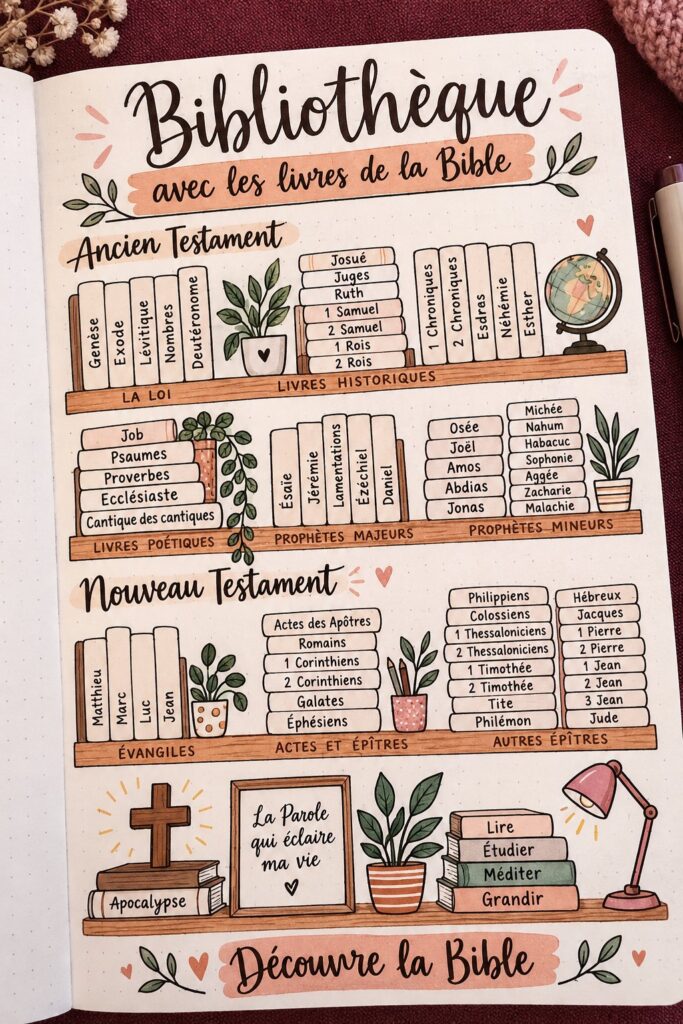 Bibliothèque
avec les livres de la Bible
Ancien Testament
Genèse
Exode
Lévitique
Nombres
Deutéronome
LA LOI
Josué
Juges
Ruth
1 Samuel
2 Samuel
1 Rois
2 Rois
1 Chroniques
2 Chroniques
Esdras
Néhémie
Esther
LIVRES HISTORIQUES
Job
Psaumes
Proverbes
Ecclésiaste
Cantique des cantiques
LIVRES POÉTIQUES
Esaïe
Jérémie
Lamentations
Ézéchiel
Daniel
PROPHÈTES MAJEURS
Osée
Joël
Amos
Abdias
Jonas
Michée
Nahum
Habacuc
Sophonie
Aggée
Zacharie
Malachie
PROPHÈTES MINEURS
Nouveau Testament
Matthieu
Marc
Luc
Jean
ÉVANGILES
Actes des Apôtres
Romains
1 Corinthiens
2 Corinthiens
Galates
Éphésiens
ACTES ET ÉPÎTRES
Philippiens
Colossiens
1 Thessaloniciens
2 Thessaloniciens
1 Timothée
2 Timothée
Tite
Philémon
Hébreux
Jacques
1 Pierre
2 Pierre
1 Jean
2 Jean
3 Jean
Jude
AUTRES ÉPÎTRES
Apocalypse
La Parole
qui éclaire
ma vie
Lire
Étudier
Méditer
Grandir
Découvre la Bible